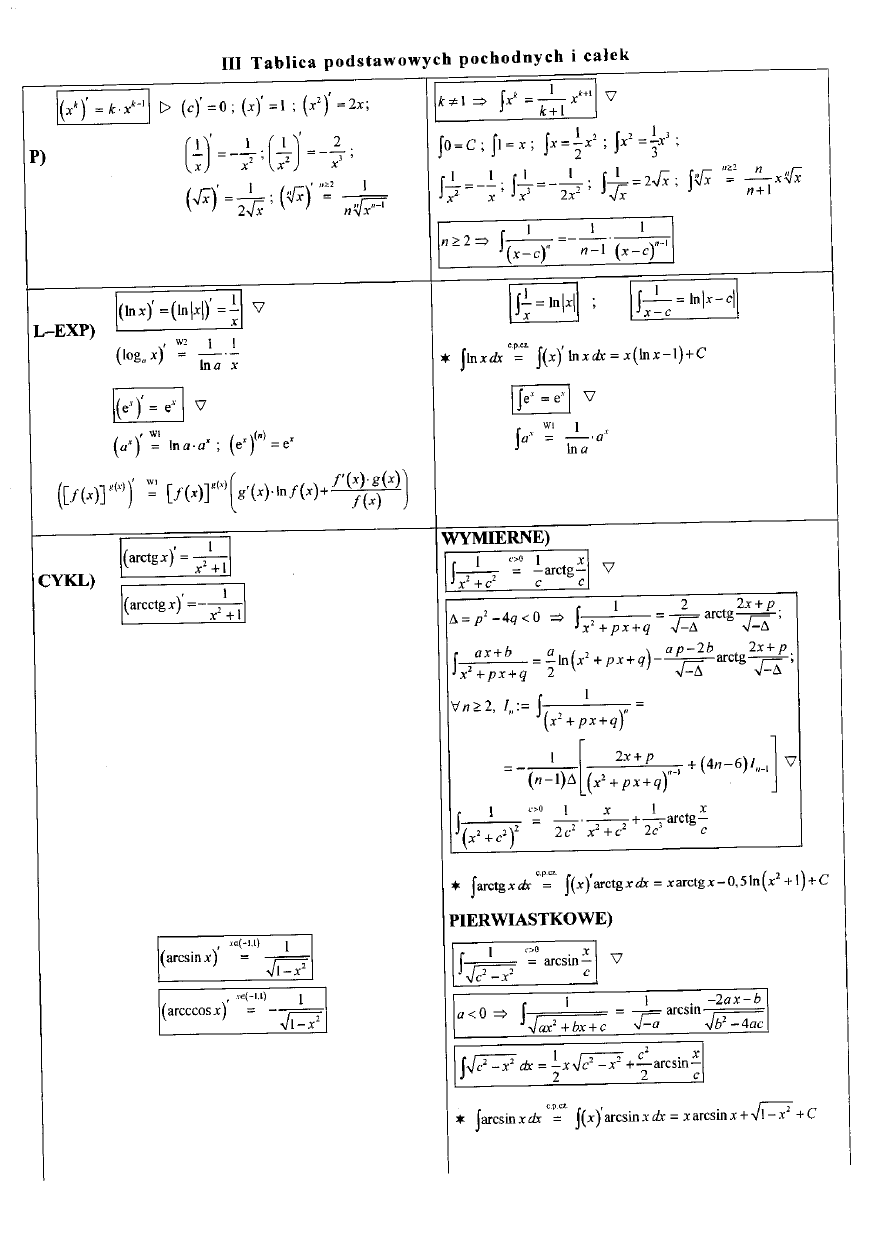 III Tablica podstawowych pochodnych i całek
P)
(x^k)' = k·x^(k-1) ▷ (c)' = 0 ; (x)' = 1 ; (x²)' = 2x;
(1/x)' = -1/x² ; (1/x²)' = -2/x³ ;
(√x)' = 1/(2√x) ; (ⁿ√x)' n≥2 = 1/(n ⁿ√(x^(n-1)))
k ≠ 1 ⇒ ∫x^k = 1/(k+1) x^(k+1) ▽
∫0 = C ; ∫1 = x ; ∫x = 1/2 x² ; ∫x² = 1/3 x³ ;
∫1/x² = -1/x ; ∫1/x³ = -1/(2x²) ; ∫1/√x = 2√x ; ∫ⁿ√x n≥2 = n/(n+1) x ⁿ√x
n ≥ 2 ⇒ ∫1/(x-c)^n = -1/(n-1) · 1/(x-c)^(n-1)
L–EXP)
(ln x)' = (ln|x|)' = 1/x ▽
(log_a x)' W2 = 1/ln a · 1/x
(e^x)' = e^x ▽
(a^x)' W1 = ln a·a^x ; (e^x)^(n) = e^x
([f(x)]^g(x))' W1 = [f(x)]^g(x) (g'(x)·ln f(x) + f'(x)·g(x)/f(x))
∫1/x = ln|x| ; ∫1/(x-c) = ln|x-c|
* ∫ln x dx c.p.cz. = ∫(x)' ln x dx = x(ln x-1)+C
∫e^x = e^x ▽
∫a^x W1 = 1/ln a · a^x
CYKL)
(arctg x)' = 1/(x²+1)
(arcctg x)' = -1/(x²+1)
(arcsin x)' x∈(-1,1) = 1/√(1-x²)
(arcccos x)' x∈(-1,1) = -1/√(1-x²)
WYMIERNE)
∫1/(x²+c²) c>0 = 1/c arctg x/c ▽
Δ = p²-4q < 0 ⇒ ∫1/(x²+px+q) = 2/√(-Δ) arctg (2x+p)/√(-Δ);
∫(ax+b)/(x²+px+q) = a/2 ln(x²+px+q) - (ap-2b)/√(-Δ) arctg (2x+p)/√(-Δ);
∀n ≥ 2, I_n := ∫1/(x²+px+q)^n =
= -1/((n-1)Δ) [(2x+p)/(x²+px+q)^(n-1) + (4n-6)I_(n-1)] ▽
∫1/(x²+c²)² c>0 = 1/(2c²) · x/(x²+c²) + 1/(2c³) arctg x/c
* ∫arctg x dx c.p.cz. = ∫(x)' arctg x dx = x arctg x - 0,5 ln(x²+1)+C
PIERWIASTKOWE)
∫1/√(c²-x²) c>0 = arcsin x/c ▽
a < 0 ⇒ ∫1/√(ax²+bx+c) = 1/√(-a) arcsin (-2ax-b)/√(b²-4ac)
∫√(c²-x²) dx = 1/2 x√(c²-x²) + c²/2 arcsin x/c
* ∫arcsin x dx c.p.cz. = ∫(x)' arcsin x dx = x arcsin x + √(1-x²) + C